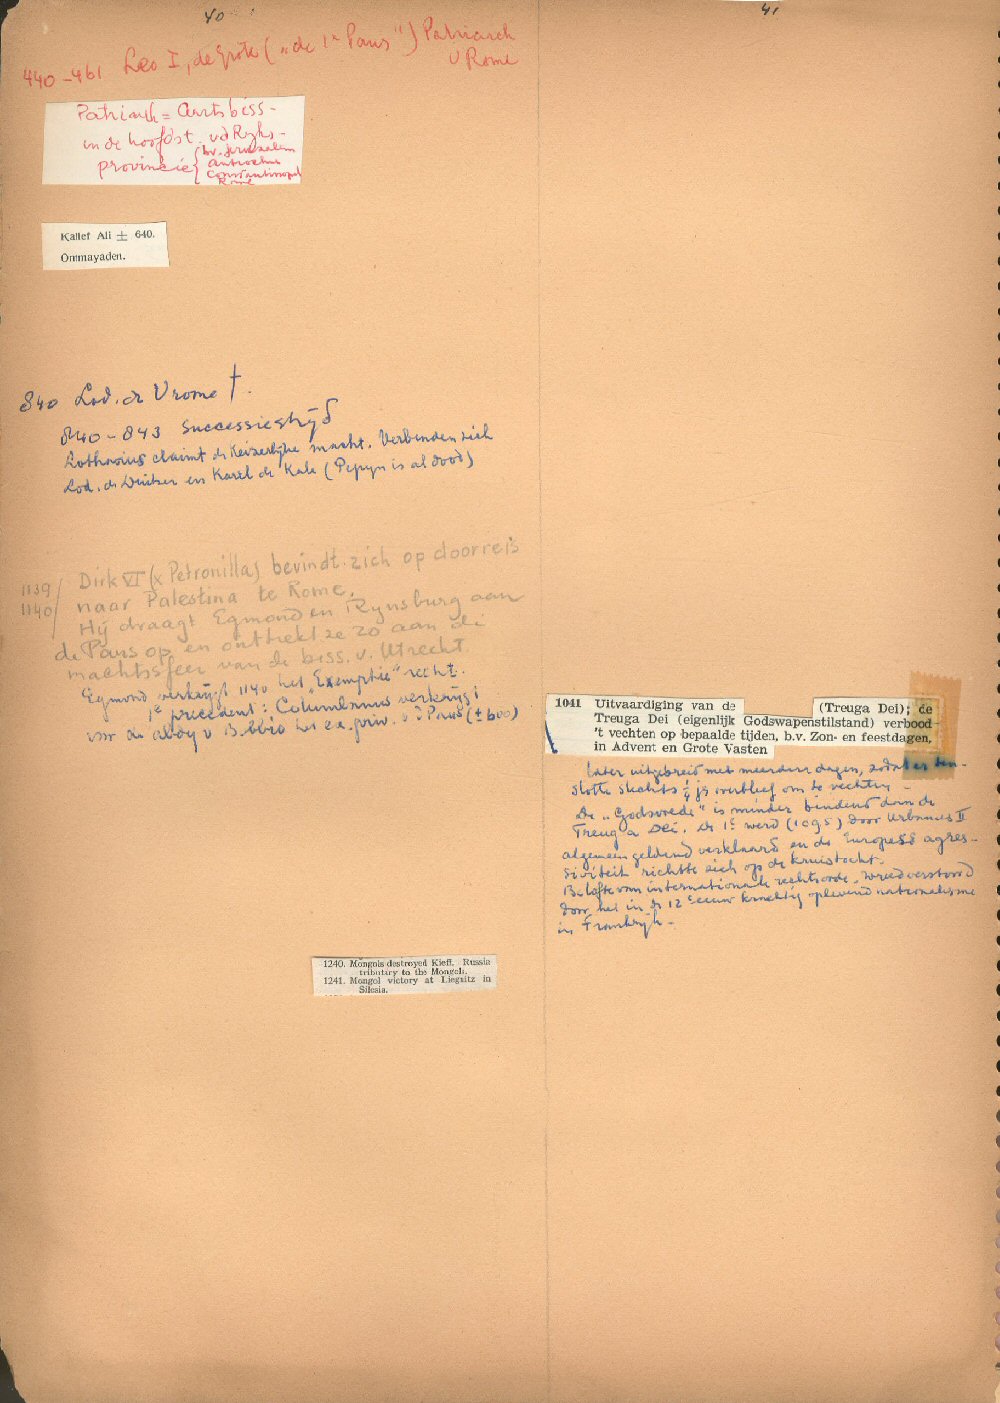 40
440-461 Leo I, de Grote („de 1e Paus") Patriarch
v Rome
Patriarch = Aartsbiss-
in de hoofdst. vd Rijks-
provincie { bv. Jeruzalem
Antiochie
Constantinopel
Rome
Kalief Ali ± 640.
Ommayaden.
840 Lod. de Vrome †.
840-843 successiestrijd
Lotharius claimt de Keizerlijke macht. Verbinden zich
Lod. de Duitser en Karel de Kale (Pepyn is al dood)
1139/
1140/
Dirk VI (x Petronilla) bevindt zich op doorreis
naar Palestina te Rome.
Hij draagt Egmond en Rynsburg aan
de Paus op en onttrekt ze zo aan de
machtssfeer van de biss. v. Utrecht.
Egmond verkrijgt 1140 het „Exemptie" recht.
1e precedent: Columbanus verkrijgt
voor de abdy v Bobbio het ex. priv. v d Paus (± 600)
1240. Mongols destroyed Kieff. Russia
tributary to the Mongols.
1241. Mongol victory at Liegnitz in
Silesia.
41
1041 Uitvaardiging van de (Treuga Dei); de
Treuga Dei (eigenlijk Godswapenstilstand) verbood
't vechten op bepaalde tijden, b.v. Zon- en feestdagen,
in Advent en Grote Vasten
later uitgebreid met meerdere dagen, zodat er ten-
slotte slechts ¼ jr overbleef om te vechten -
De „Godsvrede" is minder bindend dan de
Treuga Dei. De 1e werd (1095) door Urbanus II
algemeen geldend verklaard en de Europese agres-
siviteit richtte zich op de kruistocht.
Belofte van internationale rechtsorde, wreed verstoord
door het in de 12 eeuw krachtig oplevend nationalisme
in Frankrijk -